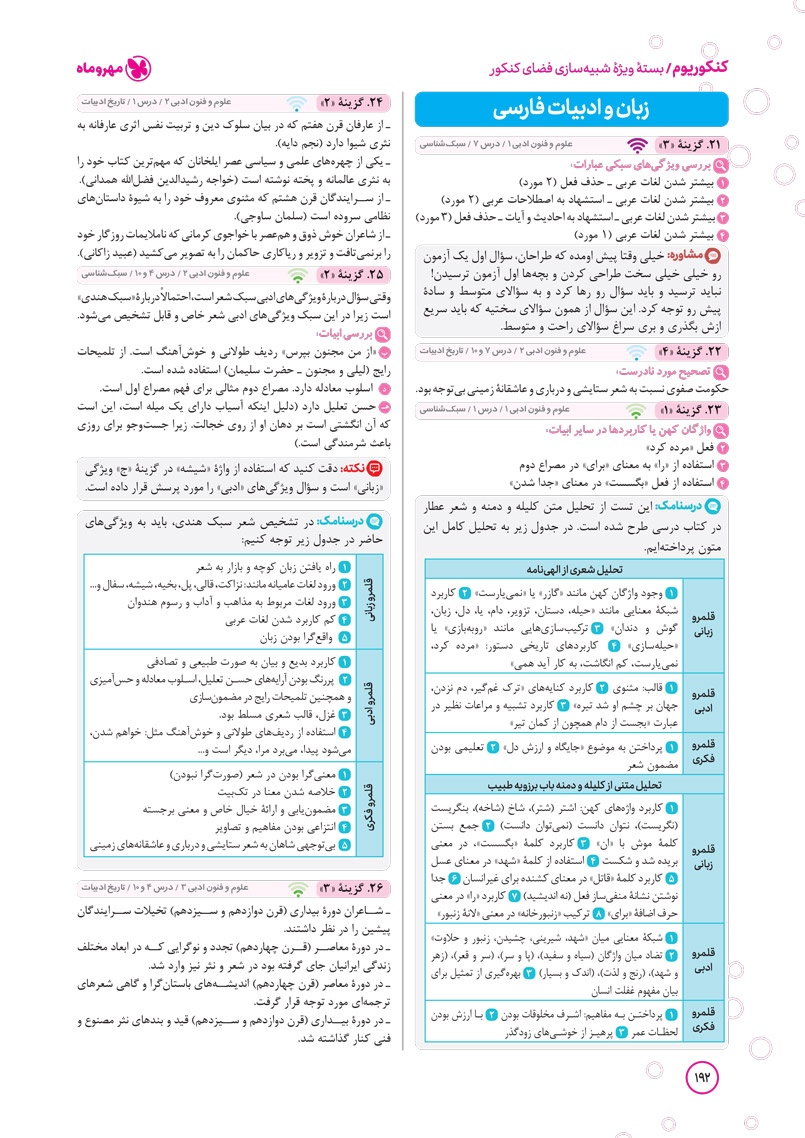 کنکوریوم/ بستهٔ ویژهٔ شبیه‌سازی فضای کنکور
مهروماه
زبان و ادبیات فارسی
۲۱. گزینهٔ «۳»
علوم و فنون ادبی ۱ / درس ۷ / سبک‌شناسی
بررسی ویژگی‌های سبکی عبارات:
۱ بیشتر شدن لغات عربی ـ حذف فعل (۲ مورد)
۲ بیشتر شدن لغات عربی ـ استشهاد به اصطلاحات عربی (۲ مورد)
۳ بیشتر شدن لغات عربی ـ استشهاد به احادیث و آیات ـ حذف فعل (۳ مورد)
۴ بیشتر شدن لغات عربی (۱ مورد)
مشاوره: خیلی وقتا پیش اومده که طراحان، سؤال اول یک آزمون
رو خیلی خیلی سخت طراحی کردن و بچه‌ها اول آزمون ترسیدن!
نباید ترسید و باید سؤال رو رها کرد و به سؤالای متوسط و سادهٔ
پیش رو توجه کرد. این سؤال از همون سؤالای سختیه که باید سریع
ازش بگذری و بری سراغ سؤالای راحت و متوسط.
۲۲. گزینهٔ «۴»
علوم و فنون ادبی ۲ / درس ۷ و ۱۰ / تاریخ ادبیات
تصحیح مورد نادرست:
حکومت صفوی نسبت به شعر ستایشی و درباری و عاشقانهٔ زمینی بی‌توجه بود.
۲۳. گزینهٔ «۱»
علوم و فنون ادبی ۱ / درس ۱ / سبک‌شناسی
واژگان کهن یا کاربردها در سایر ابیات:
۲ فعل «مرده کرد»
۳ استفاده از «را» به معنای «برای» در مصراع دوم
۴ استفاده از فعل «بگسست» در معنای «جدا شدن»
درسنامک: این تست از تحلیل متن کلیله و دمنه و شعر عطار
در کتاب درسی طرح شده است. در جدول زیر به تحلیل کامل این
متون پرداخته‌ایم.
تحلیل شعری از الهی‌نامه
قلمرو زبانی
۱ وجود واژگان کهن مانند «گازر» یا «نمی‌یارست» ۲ کاربرد
شبکهٔ معنایی مانند «حیله، دستان، تزویر، دام، یا، دل، زبان،
گوش و دندان» ۳ ترکیب‌سازی‌هایی مانند «روبه‌بازی» یا
«حیله‌سازی» ۴ کاربردهای تاریخی دستور: «مرده کرد،
نمی‌یارست، کم انگاشت، به کار آید همی»
قلمرو ادبی
۱ قالب: مثنوی ۲ کاربرد کنایه‌های «ترک غم‌گیر، دم نزدن،
جهان بر چشم او شد تیره» ۳ کاربرد تشبیه و مراعات نظیر در
عبارت «بجست از دام همچون از کمان تیر»
قلمرو فکری
۱ پرداختن به موضوع «جایگاه و ارزش دل» ۲ تعلیمی بودن
مضمون شعر
تحلیل متنی از کلیله و دمنه باب برزویه طبیب
قلمرو زبانی
۱ کاربرد واژه‌های کهن: اشتر (شتر)، شاخ (شاخه)، بنگریست
(نگریست)، نتوان دانست (نمی‌توان دانست) ۲ جمع بستن
کلمهٔ موش با «ان» ۳ کاربرد کلمهٔ «بگسست»، در معنی
بریده شد و شکست ۴ استفاده از کلمهٔ «شهد» در معنای عسل
۵ کاربرد کلمهٔ «قاتل» در معنای کشنده برای غیرانسان ۶ جدا
نوشتن نشانهٔ منفی‌ساز فعل (نه اندیشید) ۷ کاربرد «را» در معنی
حرف اضافهٔ «برای» ۸ ترکیب «زنبورخانه» در معنی «لانهٔ زنبور»
قلمرو ادبی
۱ شبکهٔ معنایی میان «شهد، شیرینی، چشیدن، زنبور و حلاوت»
۲ تضاد میان واژگان (سیاه و سفید)، (پا و سر)، (سر و قعر)، (زهر
و شهد)، (رنج و لذت)، (اندک و بسیار) ۳ بهره‌گیری از تمثیل برای
بیان مفهوم غفلت انسان
قلمرو فکری
۱ پرداختن به مفاهیم: اشرف مخلوقات بودن ۲ با ارزش بودن
لحظات عمر ۳ پرهیز از خوشی‌های زودگذر
۲۴. گزینهٔ «۲»
علوم و فنون ادبی ۲ / درس ۱ / تاریخ ادبیات
ـ از عارفان قرن هفتم که در بیان سلوک دین و تربیت نفس اثری عارفانه به
نثری شیوا دارد (نجم دایه).
ـ یکی از چهره‌های علمی و سیاسی عصر ایلخانان که مهم‌ترین کتاب خود را
به نثری عالمانه و پخته نوشته است (خواجه رشیدالدین فضل‌الله همدانی).
ـ از سرایندگان قرن هشتم که مثنوی معروف خود را به شیوهٔ داستان‌های
نظامی سروده است (سلمان ساوجی).
ـ از شاعران خوش ذوق و هم‌عصر با خواجوی کرمانی که ناملایمات روزگار خود
را برنمی‌تافت و تزویر و ریاکاری حاکمان را به تصویر می‌کشید (عبید زاکانی).
۲۵. گزینهٔ «۲»
علوم و فنون ادبی ۲ / درس ۴ و ۱۰ / سبک‌شناسی
وقتی سؤال دربارهٔ ویژگی‌های ادبی سبک شعر است، احتمالاً دربارهٔ «سبک هندی»
است زیرا در این سبک ویژگی‌های ادبی شعر خاص و قابل تشخیص می‌شود.
بررسی ابیات:
ب «از من مجنون بپرس» ردیف طولانی و خوش‌آهنگ است. از تلمیحات
رایج (لیلی و مجنون ـ حضرت سلیمان) استفاده شده است.
د اسلوب معادله دارد. مصراع دوم مثالی برای فهم مصراع اول است.
هـ حسن تعلیل دارد (دلیل اینکه آسیاب دارای یک میله است، این است
که آن انگشتی است بر دهان او از روی خجالت. زیرا جست‌وجو برای روزی
باعث شرمندگی است.)
نکته: دقت کنید که استفاده از واژهٔ «شیشه» در گزینهٔ «ج» ویژگی
«زبانی» است و سؤال ویژگی‌های «ادبی» را مورد پرسش قرار داده است.
درسنامک: در تشخیص شعر سبک هندی، باید به ویژگی‌های
حاضر در جدول زیر توجه کنیم:
قلمرو زبانی
۱ راه یافتن زبان کوچه و بازار به شعر
۲ ورود لغات عامیانه مانند: نزاکت، قالی، پل، بخیه، شیشه، سفال و...
۳ ورود لغات مربوط به مذاهب و آداب و رسوم هندوان
۴ کم کاربرد شدن لغات عربی
۵ واقع‌گرا بودن زبان
قلمرو ادبی
۱ کاربرد بدیع و بیان به صورت طبیعی و تصادفی
۲ پررنگ بودن آرایه‌های حسن تعلیل، اسلوب معادله و حس‌آمیزی
و همچنین تلمیحات رایج در مضمون‌سازی
۳ غزل، قالب شعری مسلط بود.
۴ استفاده از ردیف‌های طولانی و خوش‌آهنگ مثل: خواهم شدن،
می‌شود پیدا، می‌برد مرا، دیگر است و...
قلمرو فکری
۱ معنی‌گرا بودن در شعر (صورت‌گرا نبودن)
۲ خلاصه شدن معنا در تک‌بیت
۳ مضمون‌یابی و ارائهٔ خیال خاص و معنی برجسته
۴ انتزاعی بودن مفاهیم و تصاویر
۵ بی‌توجهی شاهان به شعر ستایشی و درباری و عاشقانه‌های زمینی
۲۶. گزینهٔ «۳»
علوم و فنون ادبی ۳ / درس ۴ و ۱۰ / تاریخ ادبیات
ـ شاعران دورهٔ بیداری (قرن دوازدهم و سیزدهم) تخیلات سرایندگان
پیشین را در نظر داشتند.
ـ در دورهٔ معاصر (قرن چهاردهم) تجدد و نوگرایی که در ابعاد مختلف
زندگی ایرانیان جای گرفته بود در شعر و نثر نیز وارد شد.
ـ در دورهٔ معاصر (قرن چهاردهم) اندیشه‌های باستان‌گرا و گاهی شعرهای
ترجمه‌ای مورد توجه قرار گرفت.
ـ در دورهٔ بیداری (قرن دوازدهم و سیزدهم) قید و بندهای نثر مصنوع و
فنی کنار گذاشته شد.
۱۹۲